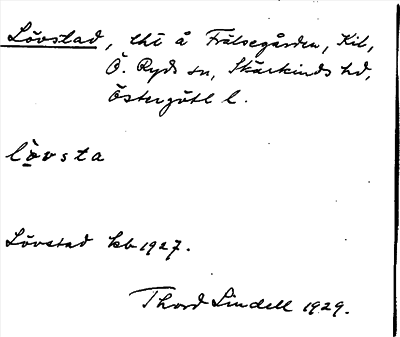 Lövstad, lht å Frälsegården, Kil,
Ö. Ryds sn, Skärkinds hd,
Östergötl l.
lòvsta
Lövstad kb 1927.
Thord Lindell 1929.